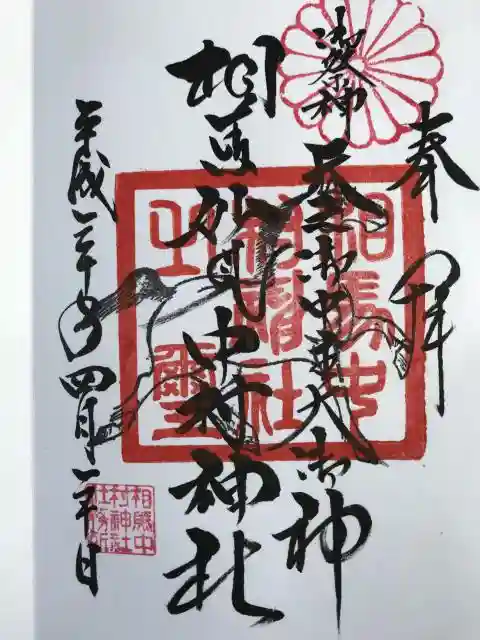 奉拝
御祭神
天之御中主大御神
相馬妙見中村神社
平成二十年四月二十日
相馬中村神社之璽
相馬中村神社社務所